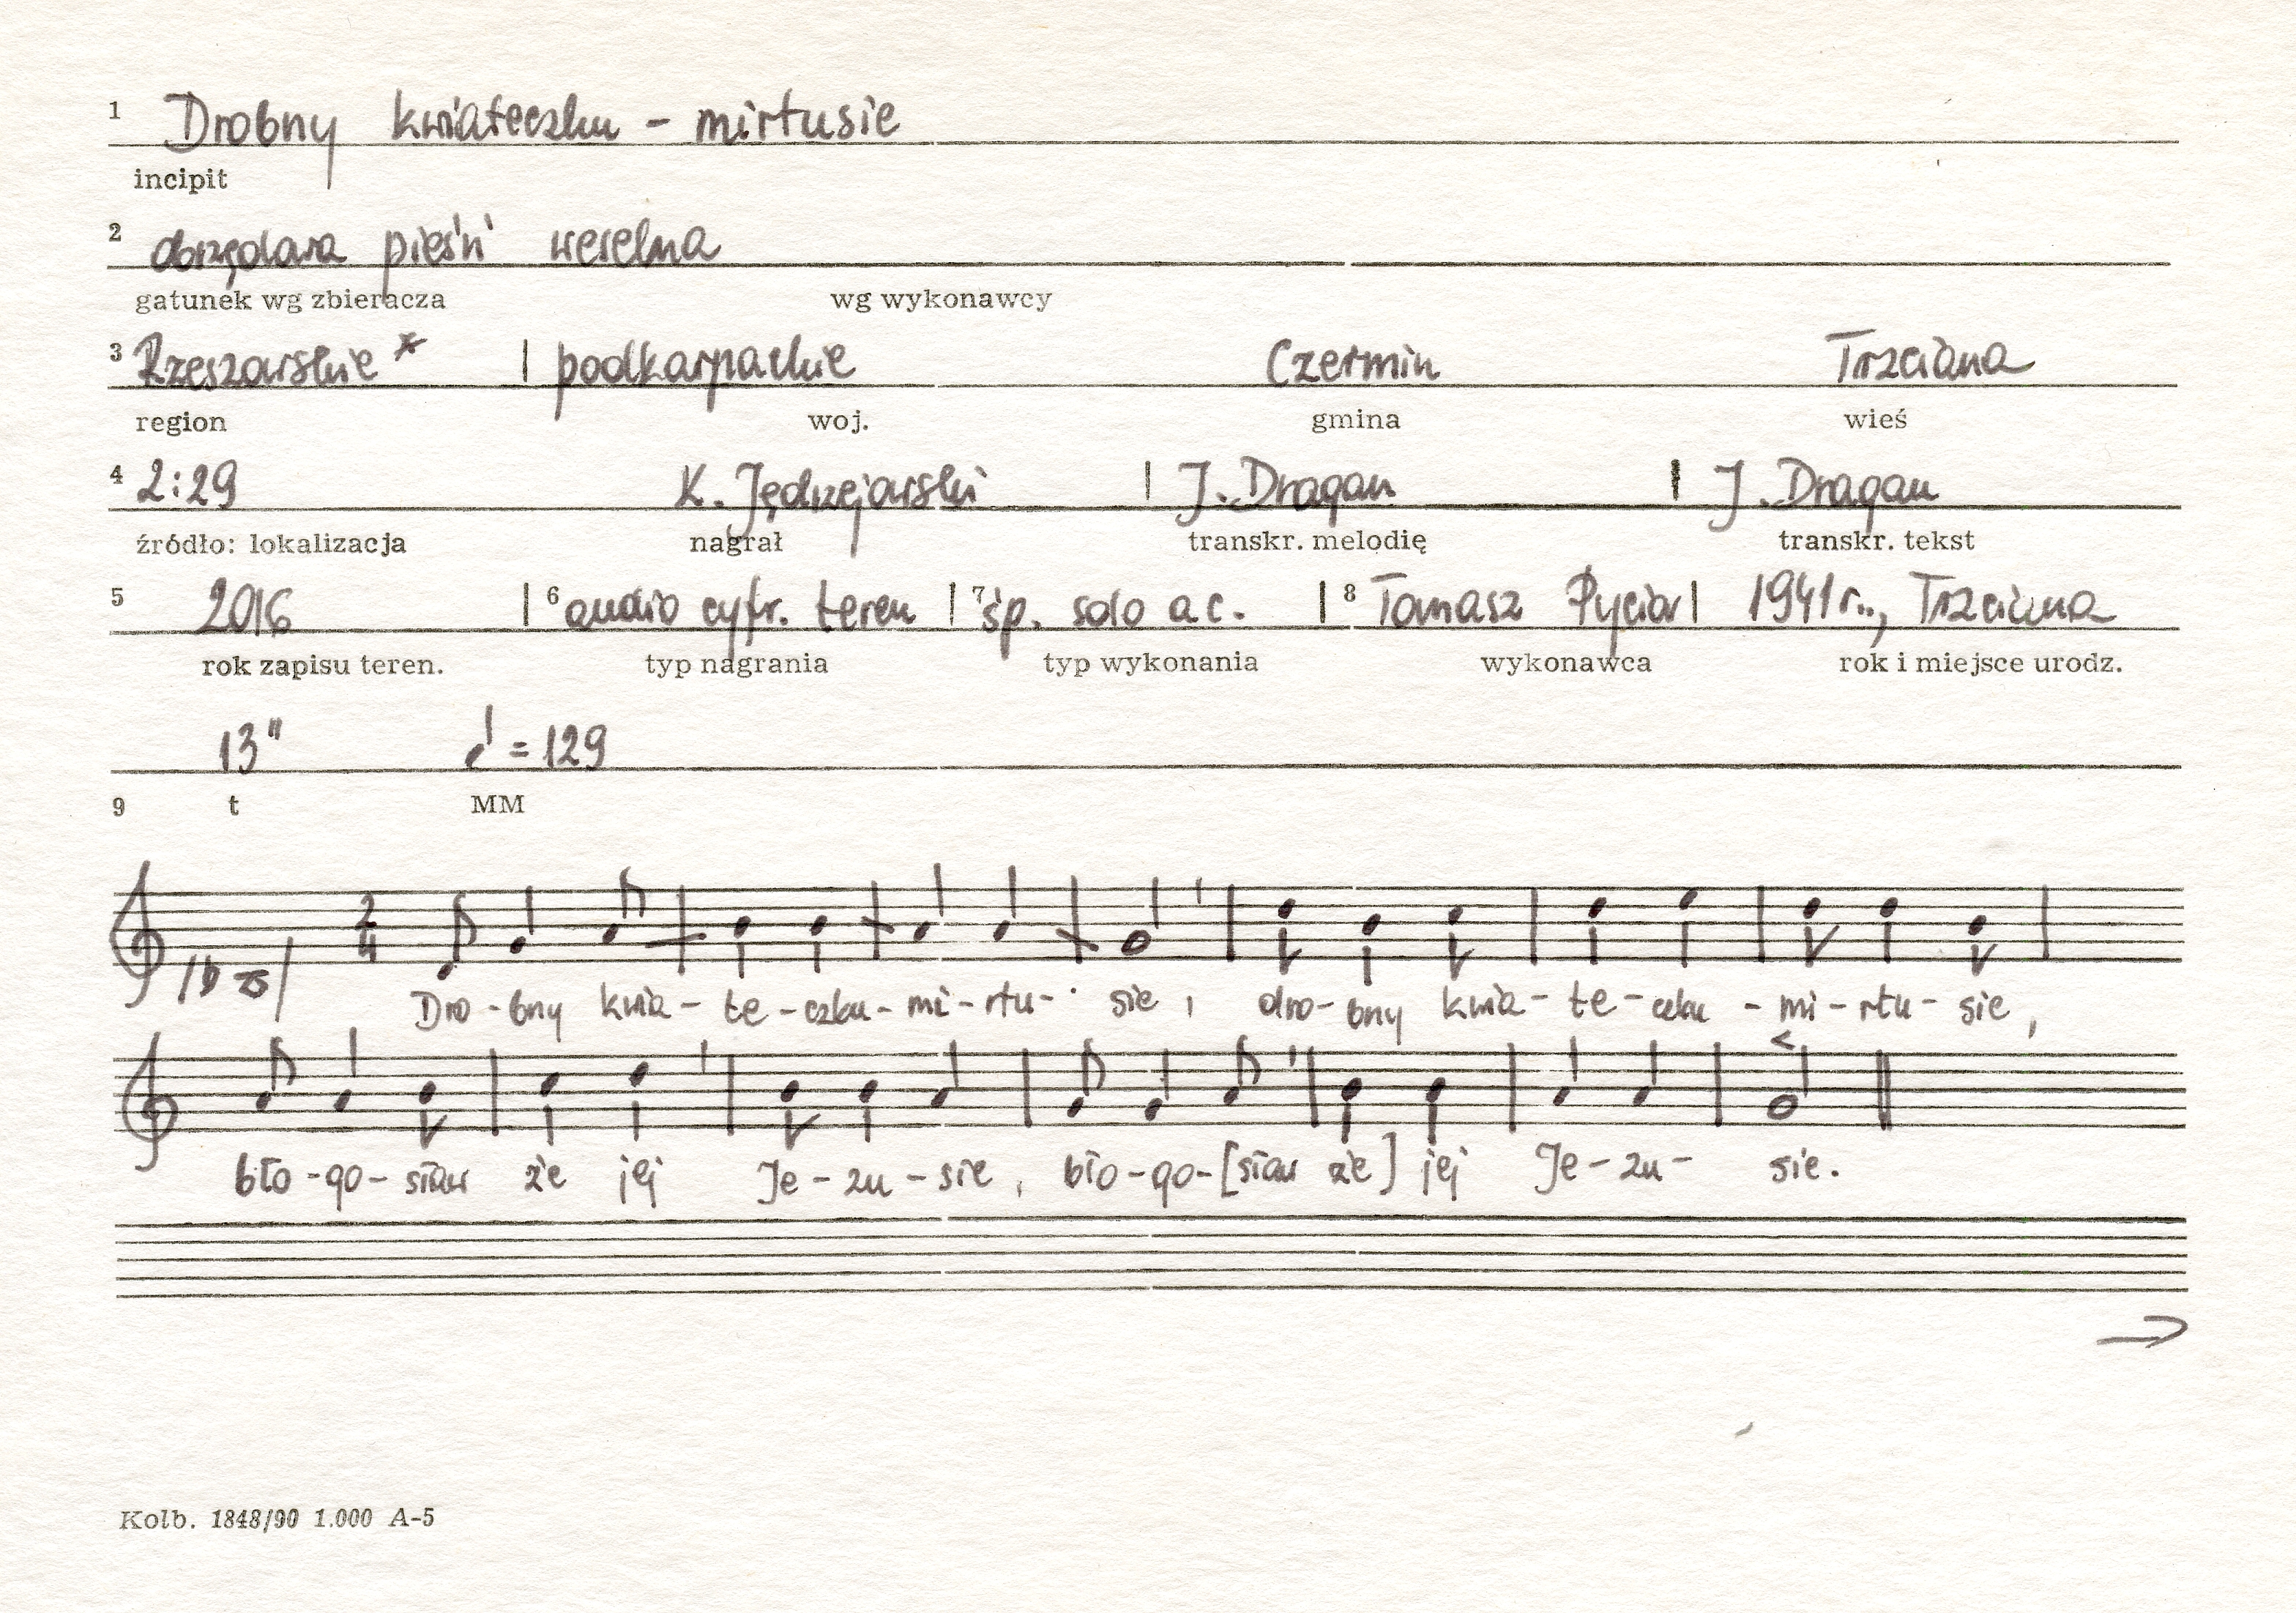 1 Drobny kwiateczku - mirtusie
incipit
2 obrzędowa pieśń weselna
gatunek wg zbieracza wg wykonawcy
3 Rzeszowskie * | podkarpackie Czermin Trzciana
region woj. gmina wieś
4 2:29 K. Jędrzejowski | J. Dragan | J. Dragan
źródło: lokalizacja nagrał transkr. melodię transkr. tekst
5 2016 | 6 audio cyfr. teren | 7 śp. solo a c. | 8 Tomasz Pycior | 1941 r., Trzciana
rok zapisu teren. typ nagrania typ wykonania wykonawca rok i miejsce urodz.
13" = 129
9 t MM
2
4
Dro - bny kwia - te - czku - mi - rtu - sie, dro - bny kwia - te - czku - mi - rtu - sie,
bło - go - sław że jej Je - zu - sie, bło - go - [sław że] jej Je - zu - sie.
Kolb. 1848/90 1.000 A-5